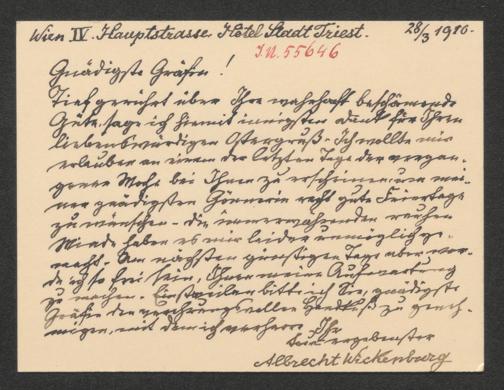 Wien IV. Hauptstrasse Hôtel Stadt Triest. 28/3 1910.
I.N. 55646
Gnädigste Gräfin!
Tief gerührt über Ihre wahrhaft beschämende
Güte, sage ich hiemit innigsten Dank für Ihren
liebenswürdigen Ostergruß. Ich wollte mir
erlauben an einem der letzten Tage der vergan-
genen Woche bei Ihnen zu erscheinen um mei-
ner gnädigsten Gönnerin recht gute Feiertage
zu wünschen - die immerwährenden rauhen
Winde haben es mir leider unmöglich ge-
macht. Am nächsten günstigen Tage aber wer-
de ich so frei sein, Ihnen meine Aufwartung
zu machen. Einstweilen bitte ich Sie, gnädigste
Gräfin den verehrungsvollen Handkuß zu geneh-
migen, mit dem ich verharre Ihr
ergebenster
Albrecht Wickenburg